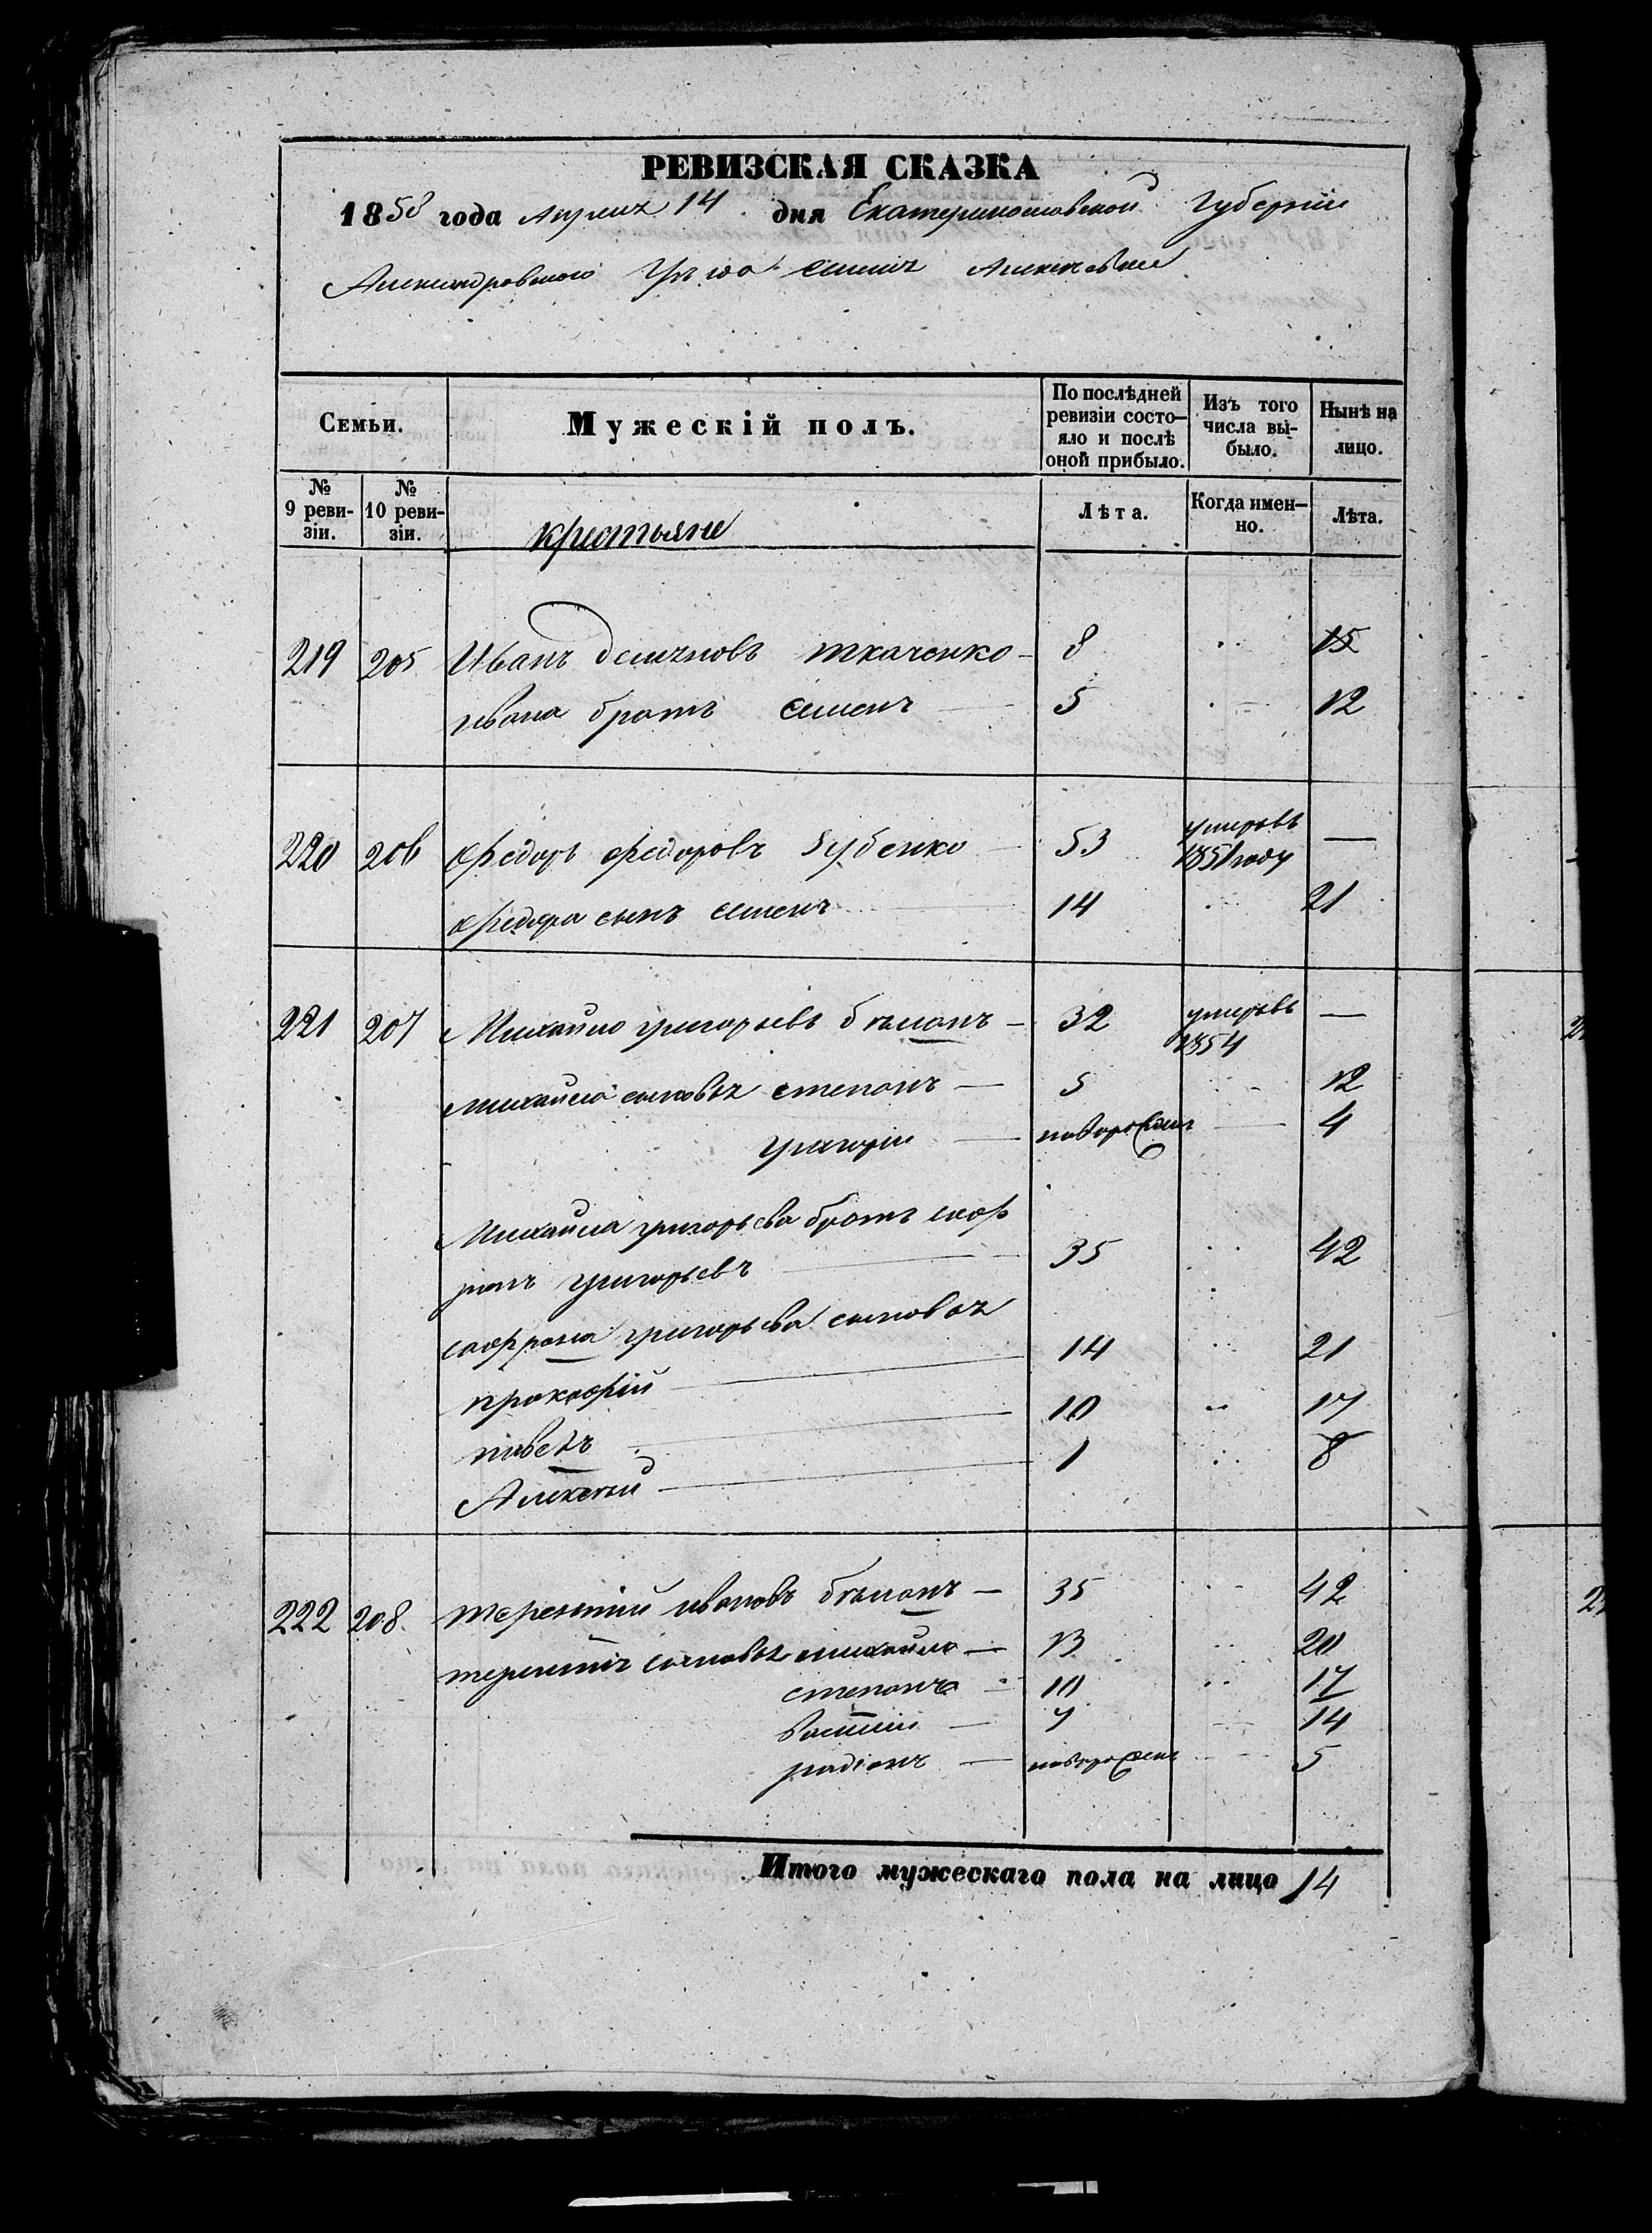 РЕВИЗСКАЯ СКАЗКА
1858 года Апреля 14 дня Екатеринославской Губернии
Александровского Уезда Алексѣевки
Семьи.
Мужескій полъ.
По послѣдней ревизіи состо-
яло и послѣ
оной прибыло.
Изъ того
числа вы-
было.
Нынѣ на
лицо.
№
9 реви-
зіи.
№
10 реви-
зіи.
крестьяне
Лѣта.
Когда имен-
но.
Лѣта.
219 205 Иванъ ткаченко 8 15
ивана братъ Семенъ 5 12
220 206 Федоръ Федоровъ Зубенко 53 умеръ 1851 году —
Федора сынъ Семенъ 14 21
221 207 Михайло григорьевъ бѣланъ 32 умеръ 1854 —
михайла сыновья степанъ 5 12
григорій новорожден 4
Михайла григорьева братъ соф
ронъ григорьевъ 35 42
софрона григорьева сыновья
прокофій 14 21
павелъ 10 17
Алексей 1 8
222 208 терентій ивановъ бѣланъ 35 42
терентія сыновья михайло 13 20
степанъ 10 17
василій 7 14
радіонъ новорожден 5
Итого мужескаго пола на лицо 14